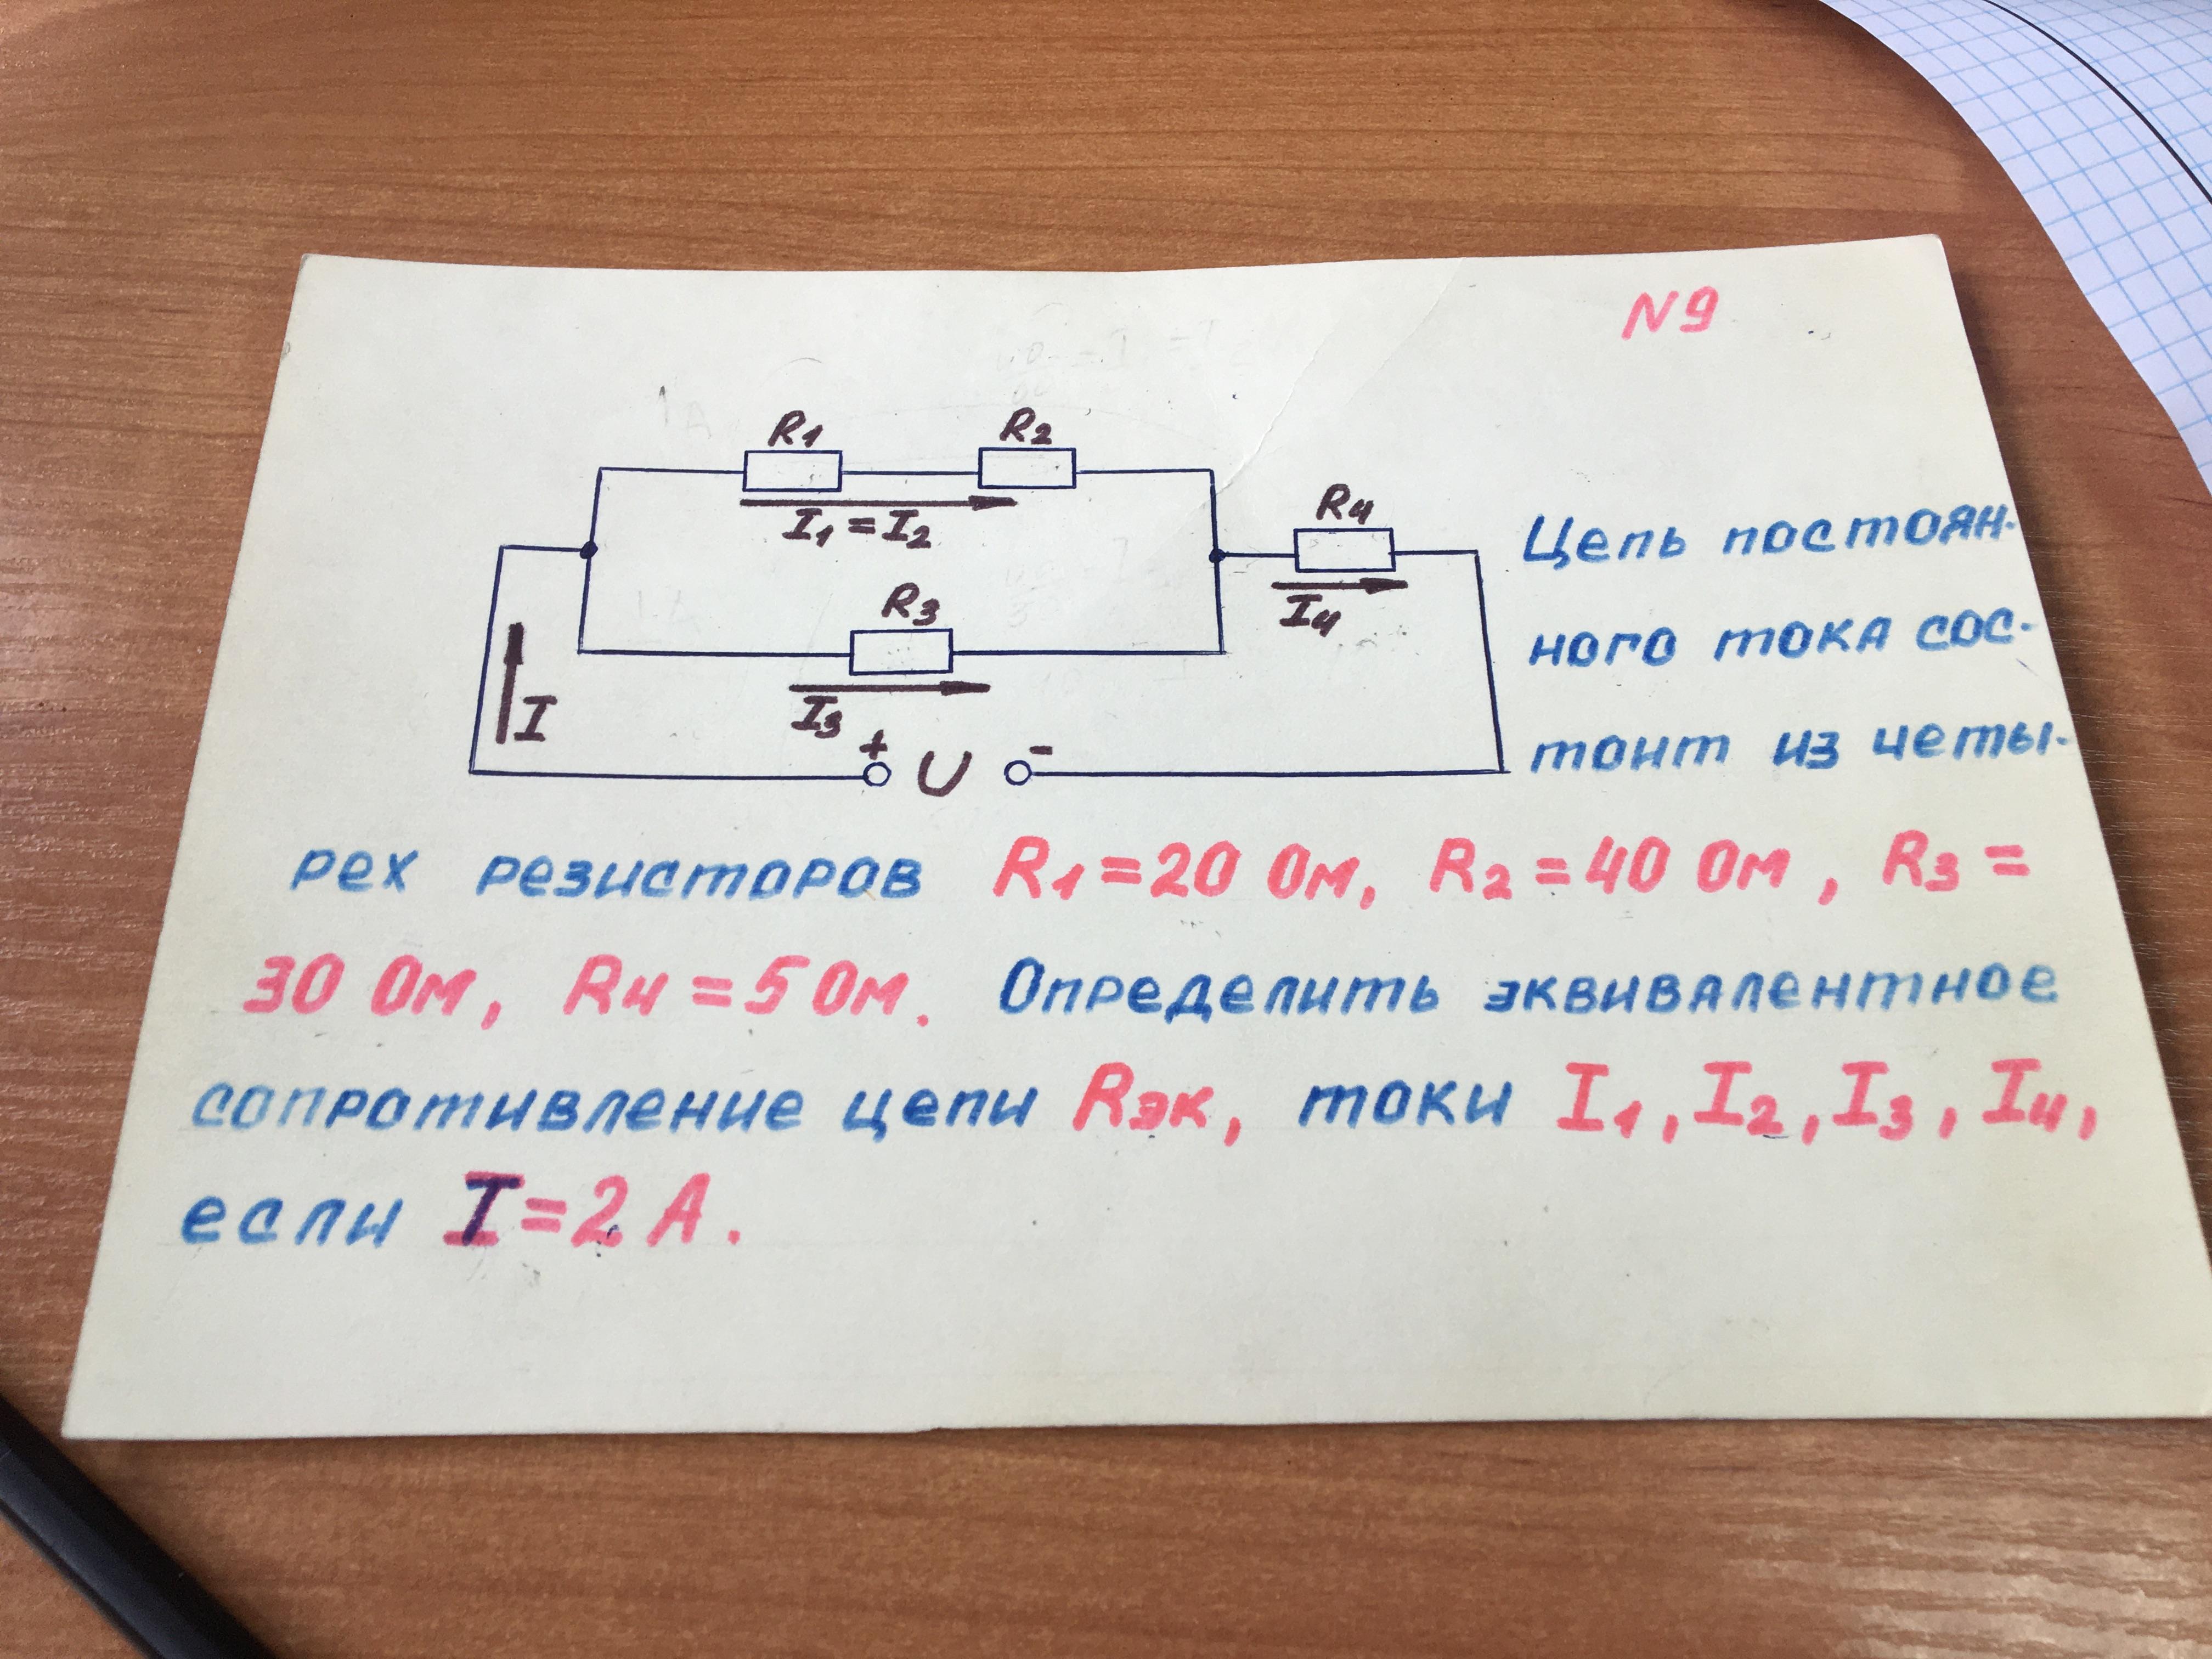 N9
R1 R2
I1 = I2
R4
I4
R3
I3
I
+ U -
Цепь постоян-
ного тока сос-
тоит из четы-
рех резисторов R1=20 Ом, R2=40 Ом, R3=
30 Ом, R4=5 Ом. Определить эквивалентное
сопротивление цепи Rэк, токи I1, I2, I3, I4,
если I=2 А.